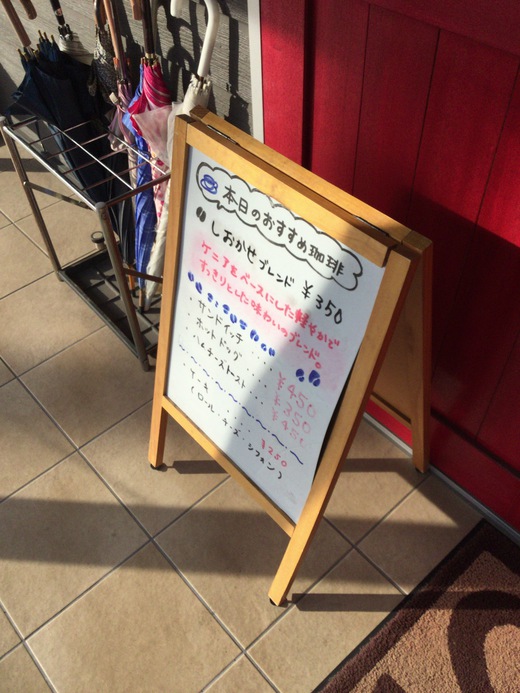 本日のおすすめ珈琲
しおかぜブレンド ¥350
ケニアをベースにした軽やかで
すっきりとした味わいのブレンド。
・サンドイッチ・・・¥450
・ホットドッグ・・・¥350
・ハムチーズトースト・・・¥450
・ケーキ・・・・¥250
(ロール、チーズ、シフォン)